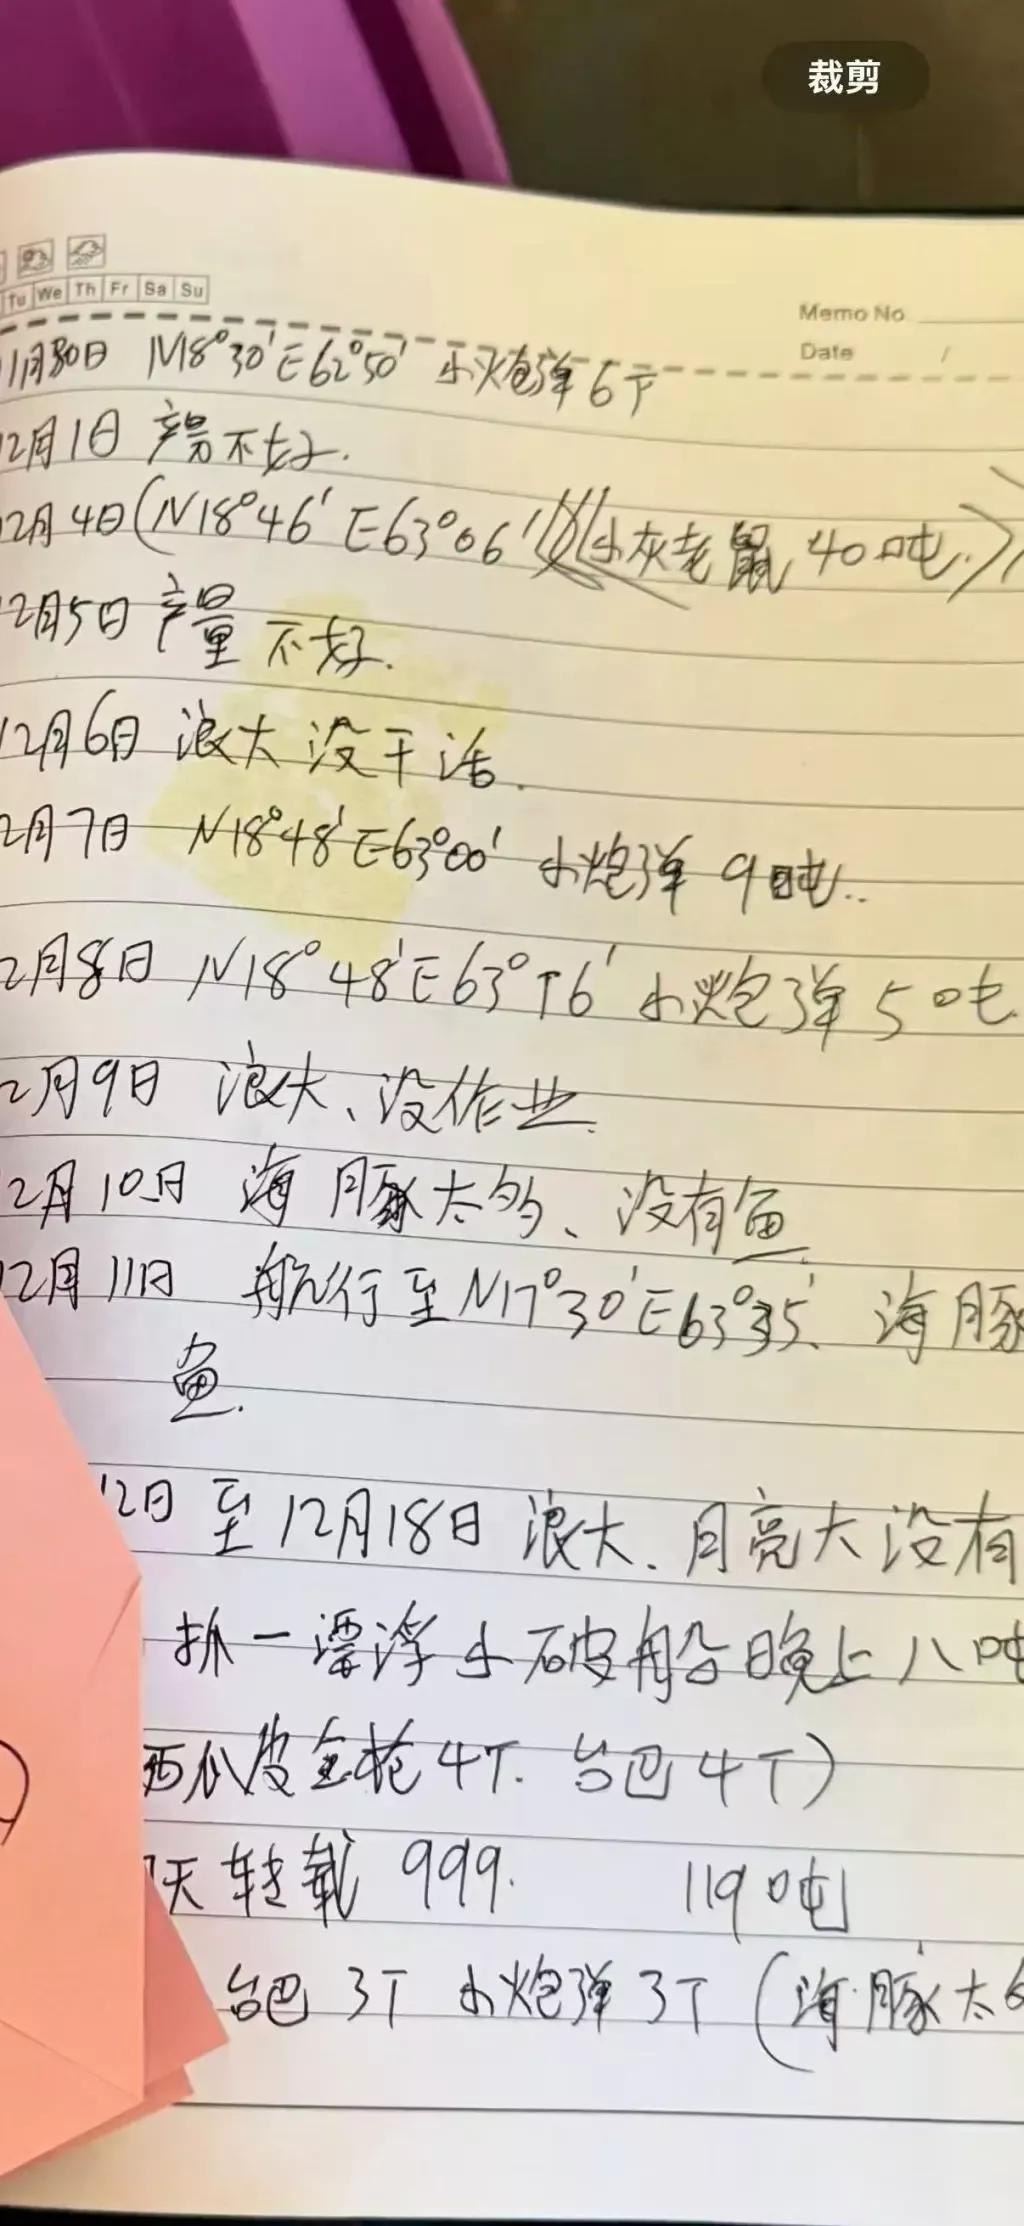 裁剪
Tu We Th Fr Sa Su
Memo No
Date /
11月30日 N18°30′E62°50′ 小炮弹6T
12月1日 产量不好.
12月4日(N18°46′E63°06′ 小灰老鼠 40吨.)
2月5日 产量不好.
12月6日 浪大没干活.
2月7日 N18°48′E63°00′ 小炮弹 9吨..
2月8日 N18°48′E63° 6′ 小炮弹 5吨.
2月9日 浪大、没作业.
2月10日 海豚太多、没有鱼.
12月11日 航行至N17°30′E63°35′、海豚
鱼.
12日至12月18日 浪大、月亮大没有
抓一漂浮小破船晚上八吨
西瓜皮金枪4T. 台巴4T)
天转载 999. 119吨
台巴 3T 小炮弹 3T (海豚太多